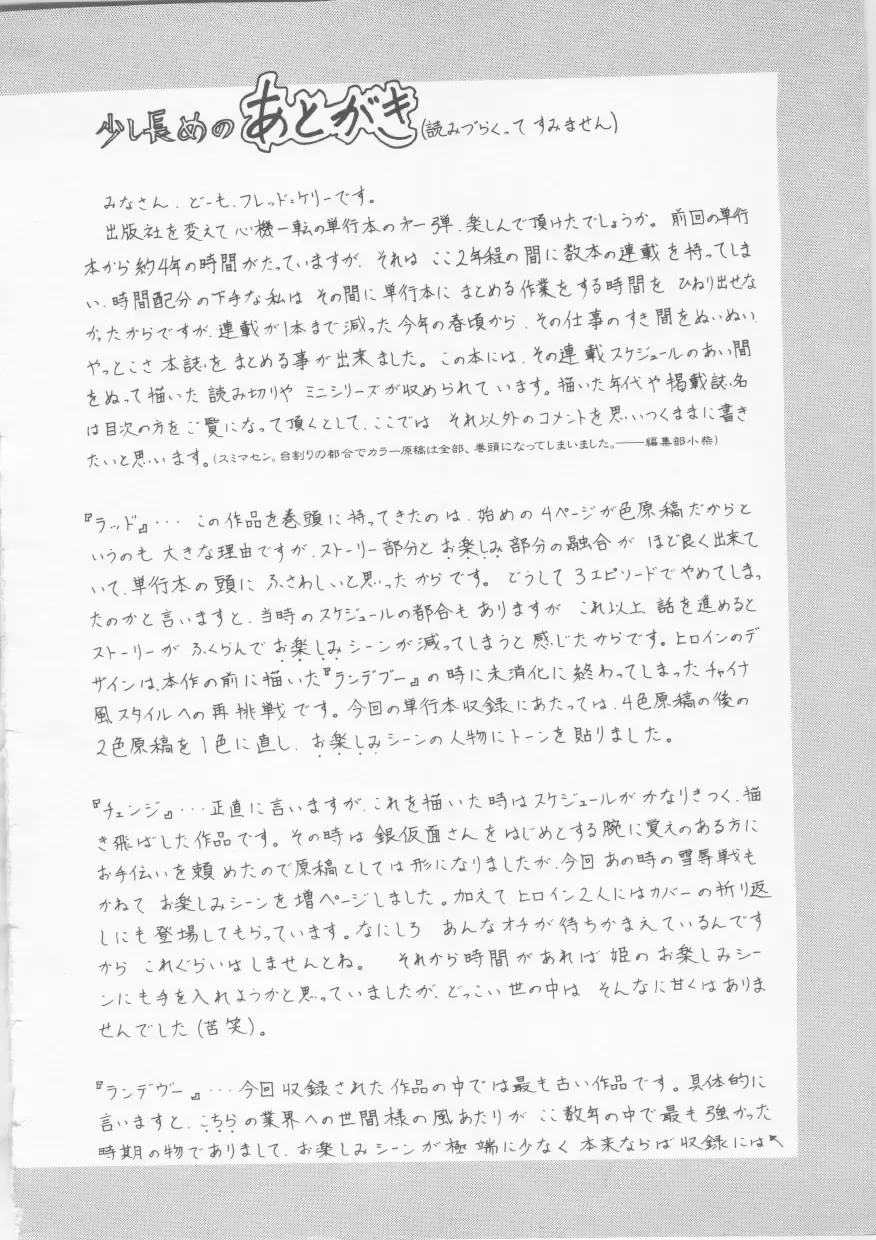 少し長めの あとがき (読みづらくって すみません)
みなさん、どーも、フレッド=ケリーです。
出版社を変えて心機一転の単行本の才一弾、楽しんで頂けたでしょうか。前回の単行
本から約4年の時間がたっていますが、それは ここ2年程の間に数本の連載を持ってしま
い、時間配分の下手な私は その間に単行本に まとめる作業をする時間を ひねり出せな
かったからですが、連載が1本まで減った今年の春頃から、その仕事のすき間をぬいぬい、
やっとこさ 本誌をまとめる事が出来ました。この本には、その連載スケジュールのあい間
をぬって描いた 読み切りや ミニシリーズが収められています。描いた年代や掲載誌名
は目次の方をご覧になって頂くとして、ここでは それ以外のコメントを思いつくままに書き
たいと思います。(スミマセン。台割りの都合でカラー原稿は全部、巻頭になってしまいました。――編集部小柴)
『ラッド』・・・ この作品を巻頭に持ってきたのは、始めの4ページが色原稿だからと
いうのも 大きな理由ですが、ストーリー部分とお楽しみ部分の融合が ほど良く出来て
いて、単行本の頭に ふさわしいと思ったからです。 どうして3エピソードでやめてしまっ
たのかと言いますと、当時のスケジュールの都合も ありますが これ以上 話を進めると
ストーリーが ふくらんでお楽しみシーンが減ってしまうと感じたからです。ヒロインのデ
ザインは、本作の前に描いた『ランデブー』の時に未消化に終わってしまったチャイナ
風スタイルへの再挑戦です。今回の単行本収録にあたっては、4色原稿の後の
2色原稿を1色に直し、お楽しみシーンの人物にトーンを貼りました。
『チェンジ』・・・正直に言いますが、これを描いた時はスケジュールがかなりきつく、描
き飛ばした作品です。その時は銀仮面さんをはじめとする腕に覚えのある方に
お手伝いを頼めたので原稿としては形になりましたが、今回あの時の雪辱戦も
かねて お楽しみシーンを増ページしました。加えてヒロイン2人にはカバーの折り返
しにも登場してもらっています。なにしろ あんなオチが待ちかまえているんです
から これぐらいはしませんとね。 それから時間があれば姫のお楽しみシー
ンにも手を入れようかと思っていましたが、どっこい世の中は そんなに甘くはありま
せんでした(苦笑)。
『ランデヴー』・・・今回収録された作品の中では最も古い作品です。具体的に
言いますと、こちらの業界への世間様の風あたりが ここ数年の中で最も強かった
時期の物でありまして、お楽しみシーンが極端に少なく本来ならば収録には↖